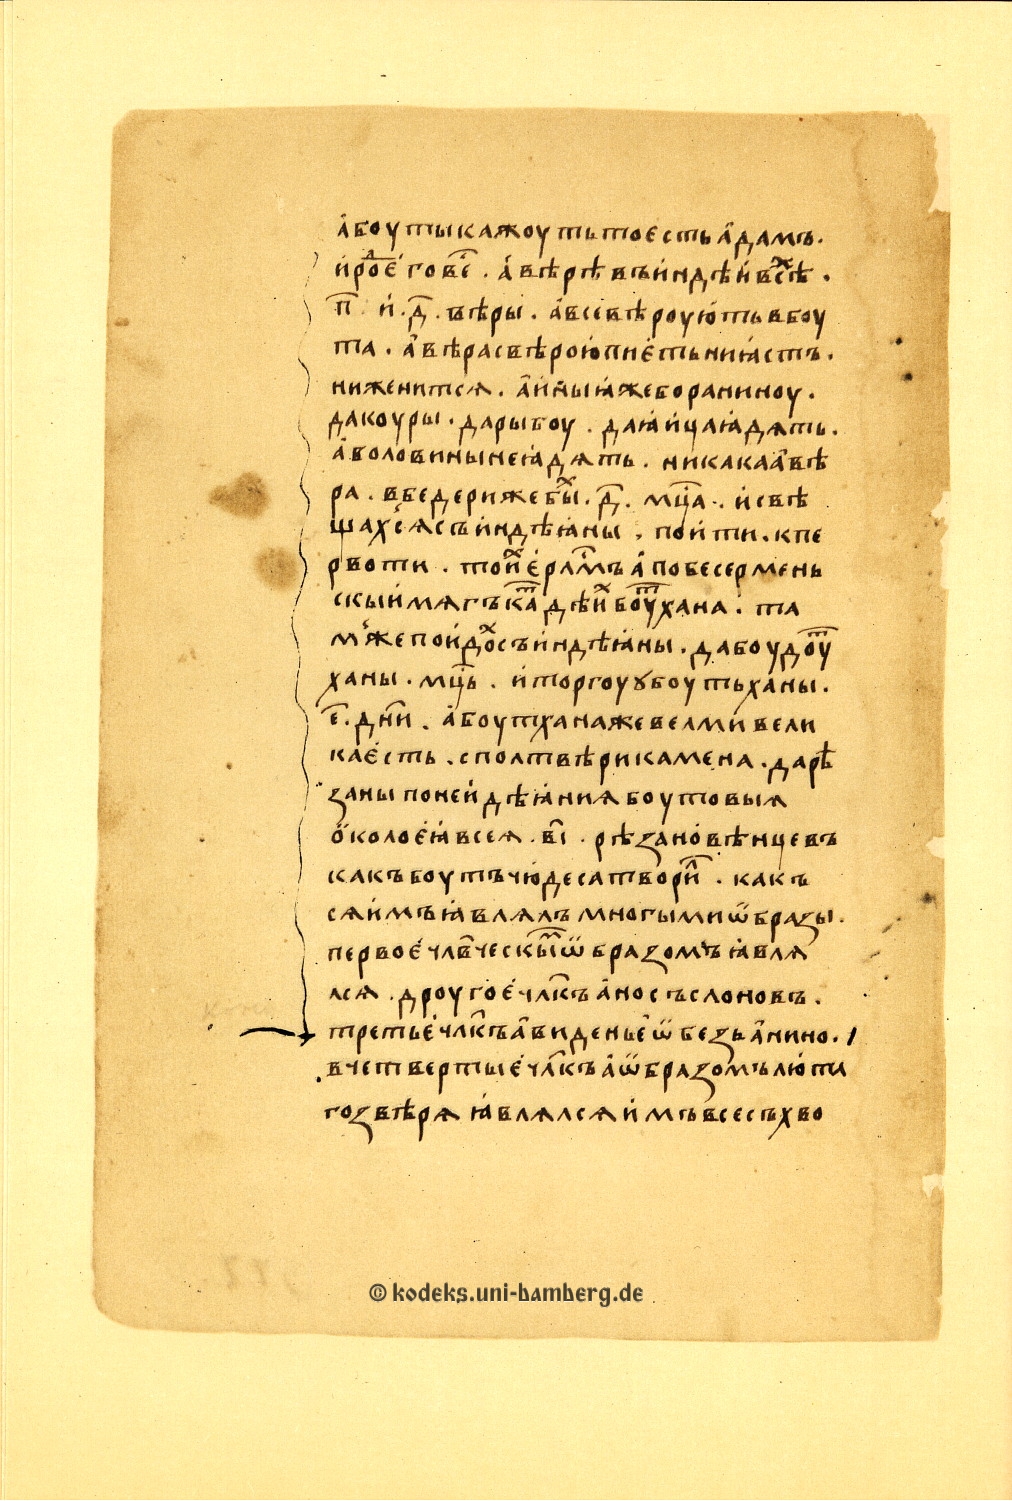 а҆боутыкажоутьтоєстьа҆дамъ.
и҆рⷪ҇дєговс҇ѐ . а҆вѣрѣвъи҆ндѣи҆всѣⷯ .
п҃ и҆ . д҃ . вѣры . а҆всевѣроую҆тьвбоу
та . а҆вѣрасвѣрою҆пиє҆тьниꙗ҆стъ .
нижєнитсѧ . а҆и҆ныꙗ҆жеборанинoу .
дакоуры . дарыбоу . даꙗ҆и҆цаꙗ҆дѧть .
а҆воловиныиеꙗ҆дѧть . никакаа҆вѣ
ра . вбедерижебыⷯ . д҃ . мц҃а . и҆свѣ
щахсѧсъи҆ндѣꙗ҆ны . пои҆ти . кпе
рвоти . тои҆ⷯє҆рл҇мъа҆побесермень
скыи҆мѧгъкаⷮдѣи҆ⷯбоуⷮхана . та
мⷤжепои҆доⷯсъи҆ндѣꙗ҆ны . дабоудоуⷮ
ханы . мц҃ь . и҆торгоуꙋбоутьханы .
є҃ . дн҃и . а҆боутханажевелмивели
кає҆сть . сполтвѣрикамена . дарѣ
заныпонеи҆дѣꙗ҆ниѧбоутовыѧ
о҆колоє҆ꙗ҆всеѧ . в҃і . рѣзано҆вѣнцевъ
какъбоутъчю҆десатвориⷧ . какъ
сѧи҆мъꙗ҆влѧлъмногымиѿбразы .
первоє҆члв҃ческыⷨѿбразомъꙗ҆влѧ
лсѧ . дроугоє҆члк҃ъа҆носъслоновъ .
третьє҆члк҃ъа҆виденьє҆ѿбезьа҆нино .
вчетвертыє҆члк҃ъа҆ѿбразомълю҆та
гозвѣрѧꙗ҆влѧлсѧи҆мъвсесъхво
© kodeks.uni-bamberg.de